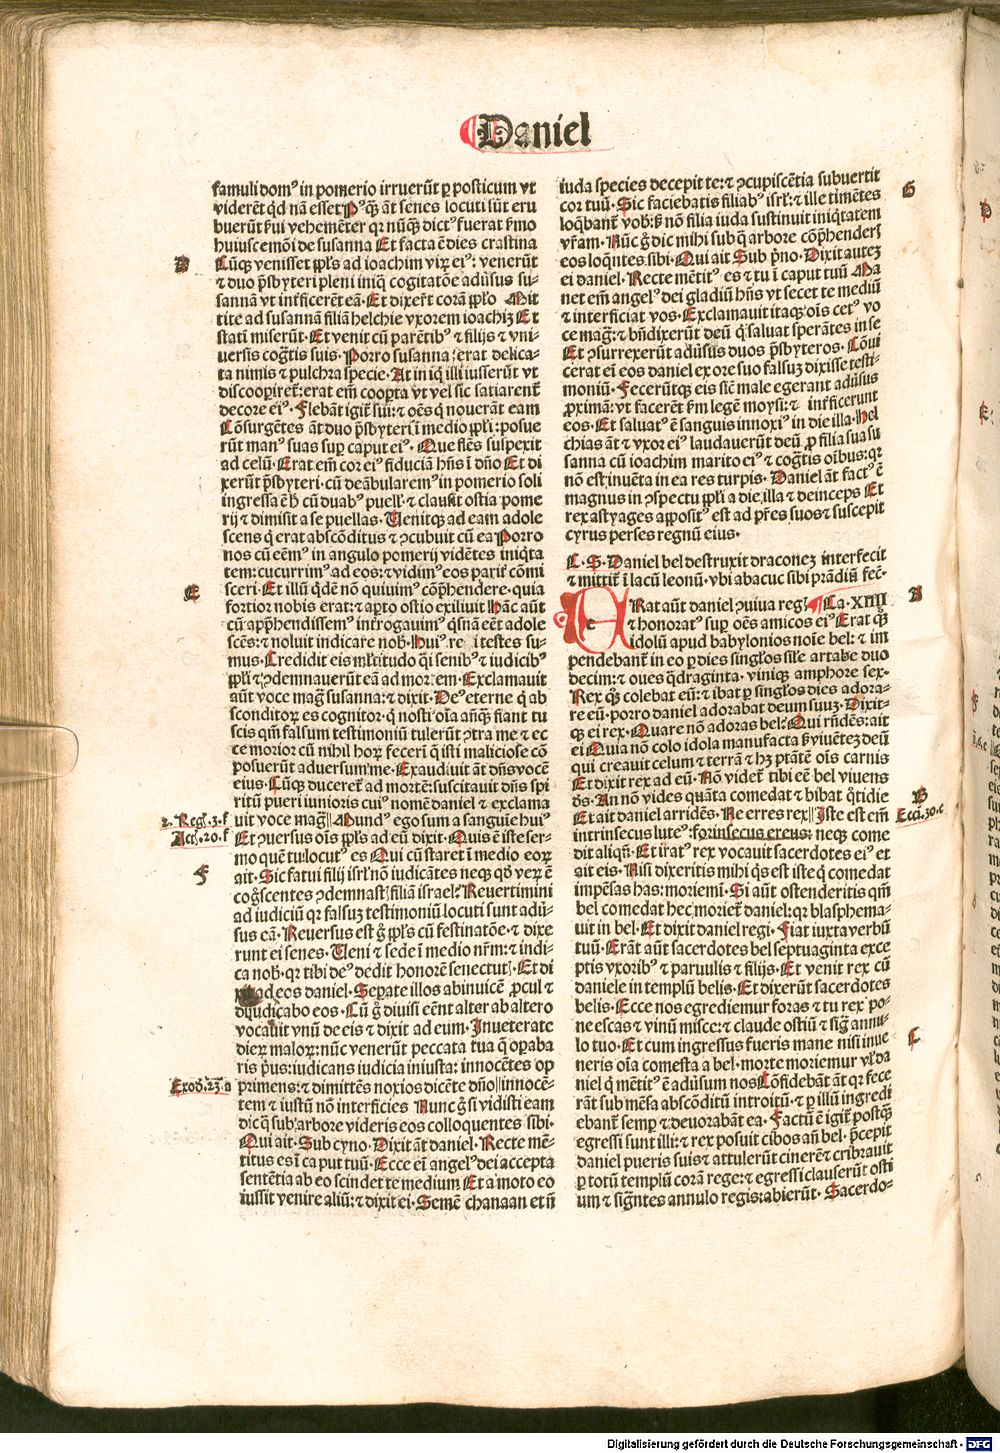 Daniel
famuli domꝰ in pomerio irruerūt ꝑ posticum vt
viderēt qḋ nā esset Pꝰq̄ȝ āt senes locuti sūt eru
buerūt ẜui vehemēter qꝛ nūq̄ȝ dictꝰ fuerat ẜmo
huiuscemōi de susanna Et facta ē dies crastina
D
Cūqȝ venisset pp̄ls ad ioachim virꝫ eiꝰ: venerūt
⁊ duo p̄sbyteri pleni iniq̄ cogitatōe aduͥsus su-
sannā vt int̄ficerēt eā. Et dixerūt corā pp̄lo Mit
tite ad susannā filiā helchie vxorem ioachiꝫ Et
statī miserūt. Et venit cū parētibꝰ ⁊ filijs ⁊ vni-
uersis cog̃tis suis. Porro susanna erat delica-
ta nimis ⁊ pulchra specie. At iniq̄ illi iusserūt vt
discoopireť: erat em̄ coopta vt vel sic satiarenť
decore eiꝰ. Flebāt igiť sui: ⁊ oēs q̄ nouerāt eam
Cōsurgētes āt duo p̄sbyteri ī medio pp̄li: posue
rūt manꝰ suas suꝑ caput eiꝰ. Que flēs suspexit
ad celū. Erat em̄ cor eiꝰ fiduciā hn̄s ī dn̄o Et di
xerūt p̄sbyteri. cū deābularemꝰ in pomerio soli
ingressa ē h̄ cū duabꝰ puell̓. ⁊ clausit ostia pome
rij ⁊ dimisit a se puellas. Uenitqȝ ad eam adole
scens q̄ erat abscōditus ⁊ ꝯcubuit cū ea Porro
nos cū eēmꝰ in angulo pomerij vidētes iniq̄ta
tem: cucurrimꝰ ad eos: ⁊ vidimꝰ eos pariť cōmi
E
sceri. Et illū q̄dē nō quiuimꝰ cōp̄hendere. quia
fortior nobis erat: ⁊ aꝑto ostio exiliuit Hāc aūt
cū app̄hendissemꝰ int̄rogauimꝰ q̄snā eēt adole
scēs: ⁊ noluit indicare nob̓. Huiꝰ rei testes su-
mus. Credidit eis ml̄titudo q̄i senibꝰ ⁊ iudicibꝰ
pp̄li ⁊ ꝯdemnauerūt eā ad mortem. Exclamauit
aūt voce mag̃ susanna: ⁊ dixit. Deꝰ eterne q̄ ab
sconditorꝫ es cognitor. q̄ nosti oīa añq̄ȝ fiant tu
scis qm̄ falsum testimoniū tulerūt ꝯtra me ⁊ ec
ce morior cū nihil horꝫ fecerī q̄ isti maliciose cō
posuerūt aduersum me. Exaudiuit āt dn̄s vocē
eius. Cūqȝ ducereť ad mortē: suscitauit dn̄s spi
ritū pueri iunioris cuiꝰ nomē daniel ⁊ exclama
2. Reg̓. 3. f
uit voce mag̃ ‖ Mundꝰ ego sum a sanguīe huiꝰ
Act̓. 20. f
Et ꝯuersus oīs pp̄ls ad eū dixit. Quis ē iste ser-
mo quē tu locutꝰ es Qui cū staret ī medio eorꝫ
F
ait. Sic fatui filij isrl̓ nō iudicātes neqȝ qḋ verꝫ ē
cog̃scentes ꝯdemnast̓ filiā israel? Reuertimini
ad iudiciū qꝛ falsuꝫ testimoniū locuti sunt aduͥ-
sus eā. Reuersus est g̊ pp̄ls cū festinatōe. ⁊ dixe
runt ei senes. Ueni ⁊ sede ī medio nr̄m: ⁊ indi-
ca nob̓. qꝛ tibi deꝰ dedit honorē senectut̓. Et di
xit ad eos daniel. Seꝑate illos abinuicē ꝓcul ⁊
dijudicabo eos. Cū g̊ diuisi eēnt alter ab altero
vocauit vnū de eis ⁊ dixit ad eum. Inueterate
dierꝫ malorꝫ: nūc venerūt peccata tua q̄ oꝑaba
ris p̄us: iudicans iudicia iniusta: innocētes op
Exoḋ. 23. a
primens: ⁊ dimittēs noxios dicēte dn̄o ‖ innocē-
tem ⁊ iustū nō interficies Nunc g̊ si vidisti eam
dic q̄ sub arbore videris eos colloquentes sibi.
Qui ait. Sub cyno. Dixit āt daniel. Recte mē-
titus es ī caput tuū. Ecce em̄ angelꝰ dei accepta
sentētia ab eo scindet te medium Et amoto eo
iussit venire aliū: ⁊ dixit ei. Semē chanaan et nō
iuda species decepit te: ⁊ ꝯcupiscētia subuertit
G
cor tuū. Sic faciebatis filiabꝰ isrl̓: ⁊ ille timētes
loq̄banť vob̓: ẜ nō filia iuda sustinuit iniq̄tatem
vr̄am. Nūc g̊ dic mihi sub q̄ arbore cōp̄henderꝭ
eos loq̄ntes sibi. Qui ait Sub p̄no. Dixit auteꝫ
ei daniel. Recte mētitꝰ es ⁊ tu ī caput tuū Ma
net em̄ angelꝰ dei gladiū hn̄s vt secet te mediū
⁊ interficiat vos. Exclamauit itaqȝ oīs cetꝰ vo
ce mag̃: ⁊ bn̄dixerūt deū q̄ saluat sperātes in se
Et ꝯsurrexerūt aduͥsus duos p̄sbyteros. Cōui
cerat ei eos daniel ex ore suo falsuꝫ dixisse testi-
moniū. Fecerūtqȝ eis sic̄ male egerant aduͥsus
ꝓximā: vt facerēt ẜm legē moysi: ⁊ int̄ficerunt
eos. Et saluatꝰ ē sanguis innoxiꝰ in die illa. Hel
chias āt ⁊ vxor eiꝰ laudauerūt deū ꝓ filia sua su
sanna cū ioachim marito eiꝰ ⁊ cog̃tis oībus: qꝛ
nō est inuēta in ea res turpis. Daniel āt factꝰ ē
magnus in ꝯspectu pp̄li a die illa ⁊ deinceps Et
rex astyages appositꝰ est ad pr̄es suos ⁊ suscepit
cyrus perses regnū eius.
C. S. Daniel bel destruxit draconeꝫ interfecit
⁊ mittiť ī lacū leonū. vbi abacuc sibi prādiū fec̓.
E
RAt aūt daniel ꝯuiua reg̓ Ca. XIIII
A
⁊ honoratꝰ suꝑ oēs amicos eiꝰ Erat q̄ȝ
idolū apud babylonios noīe bel: ⁊ im
pendebanť in eo ꝑ dies singl̓os sil̓e artabe duo
decim: ⁊ oues q̄draginta. viniqȝ amphore sex.
Rex q̄ȝ colebat eū: ⁊ ibat ꝑ singl̓os dies adora-
re eū. porro daniel adorabat deum suuꝫ. Dixit-
qȝ ei rex. Quare nō adoras bel? Qui rn̄dēs: ait
ei Quia nō colo idola manufacta ẜ viuētēꝫ deū
qui creauit celum ⁊ terrā ⁊ hꝫ ptātē oīs carnis
Et dixit rex ad eū. Nō videť tibi eē bel viuens
B
ds̄. An nō vides quāta comedat ⁊ bibat q̄tidie
Et ait daniel arridēs. Ne erres rex ‖ Iste est em̄
Ecci. 30. c
intrinsecus luteꝰ: forinsecus ereus: neqȝ come
dit aliqn̄. Et iratꝰ rex vocauit sacerdotes eiꝰ et
ait eis. Nisi dixeritis mihi q̄s est iste q̄ comedat
impēsas has: moriemī. Si aūt ostenderitis qm̄
bel comedat hec morieť daniel: qꝛ blasphema-
uit in bel. Et dixit daniel regi. Fiat iuxta verbū
tuū. Erāt aūt sacerdotes bel septuaginta exce
ptis vxoribꝰ ⁊ paruulis ⁊ filijs. Et venit rex cū
daniele in templū belis. Et dixerūt sacerdotes
belis. Ecce nos egrediemur foras ⁊ tu rex po-
ne escas ⁊ vinū misce: ⁊ claude ostiū ⁊ sig̃ annu-
C
lo tuo. Et cum ingressus fueris mane nisi inue
neris oīa comesta a bel. morte moriemur vl̓ da
niel q̄ mētitꝰ ē aduͥsum nos Cōfidebāt āt qꝛ fece
rāt sub mēsa abscōditū introitū. ⁊ ꝑ illū ingredi
ebanť semꝑ ⁊ deuorabāt ea. Factū ē igiť postq̄ȝ
egressi sunt illi: ⁊ rex posuit cibos añ bel. p̄cepit
daniel pueris suis ⁊ attulerūt cinerē ⁊ cribrauit
ꝑ totū templū corā rege: ⁊ egressi clauserūt osti
um ⁊ sig̃ntes annulo regis: abierūt. Sacerdo-
Digitalisierung gefördert durch die Deutsche Forschungsgemeinschaft - DFG